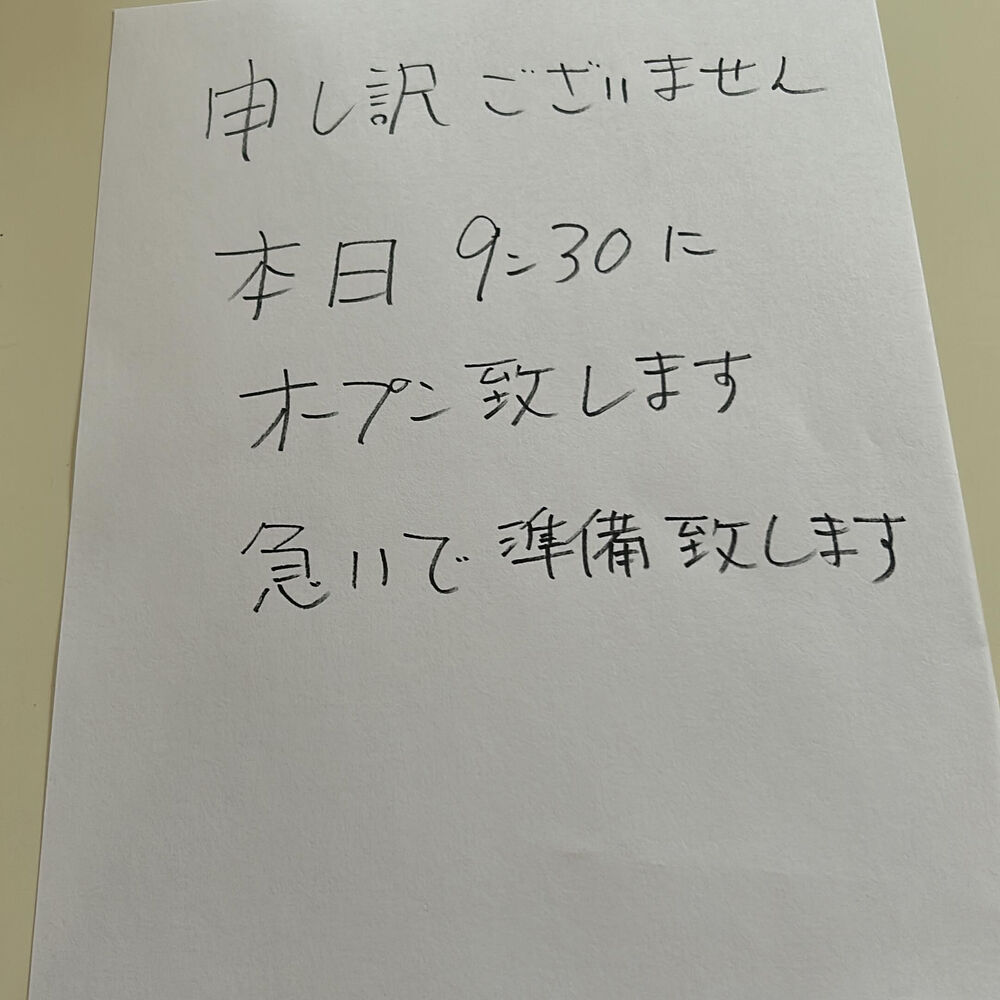 申し訳ございません
本日 9:30に
オープン致します
急いで準備致します